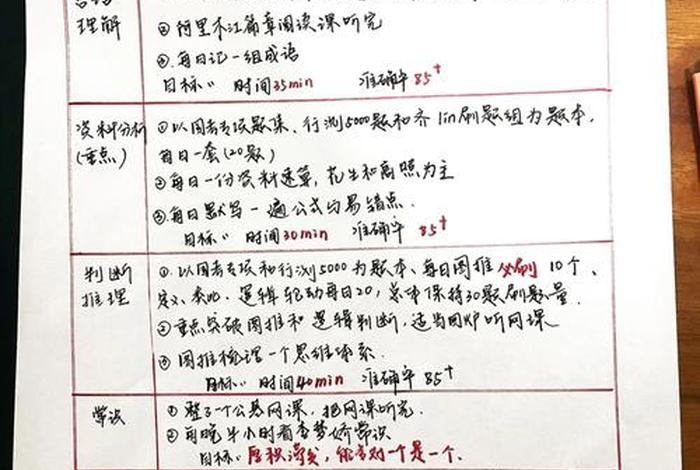 理解
②阿里木江篇章阅读课听完
③每日记一组成语
目标：时间35min 准确率85+
资料分析
(重点)
①以国考专项题集、行测5000题和齐lin刷题组为题本，
每日一套(20题)
②每日一份资料速算，花生和高照为主
③每日默写一遍公式与易错点.
目标：时间30min 准确率85+
判断
推理
①以国考专项和行测5000为题本、每日图推必刷10个、
定义、类比、逻辑轮动每日20，总体保持30题刷题量.
②重点突破图推和逻辑判断，适当回炉听网课
③图推梳理一个思维体系.
目标：时间40min 准确率85+
常识
①整了一个公基网课，把网课听完.
②每晚半小时看李梦娇常识
目标：厚积薄发，能多对一个是一个.